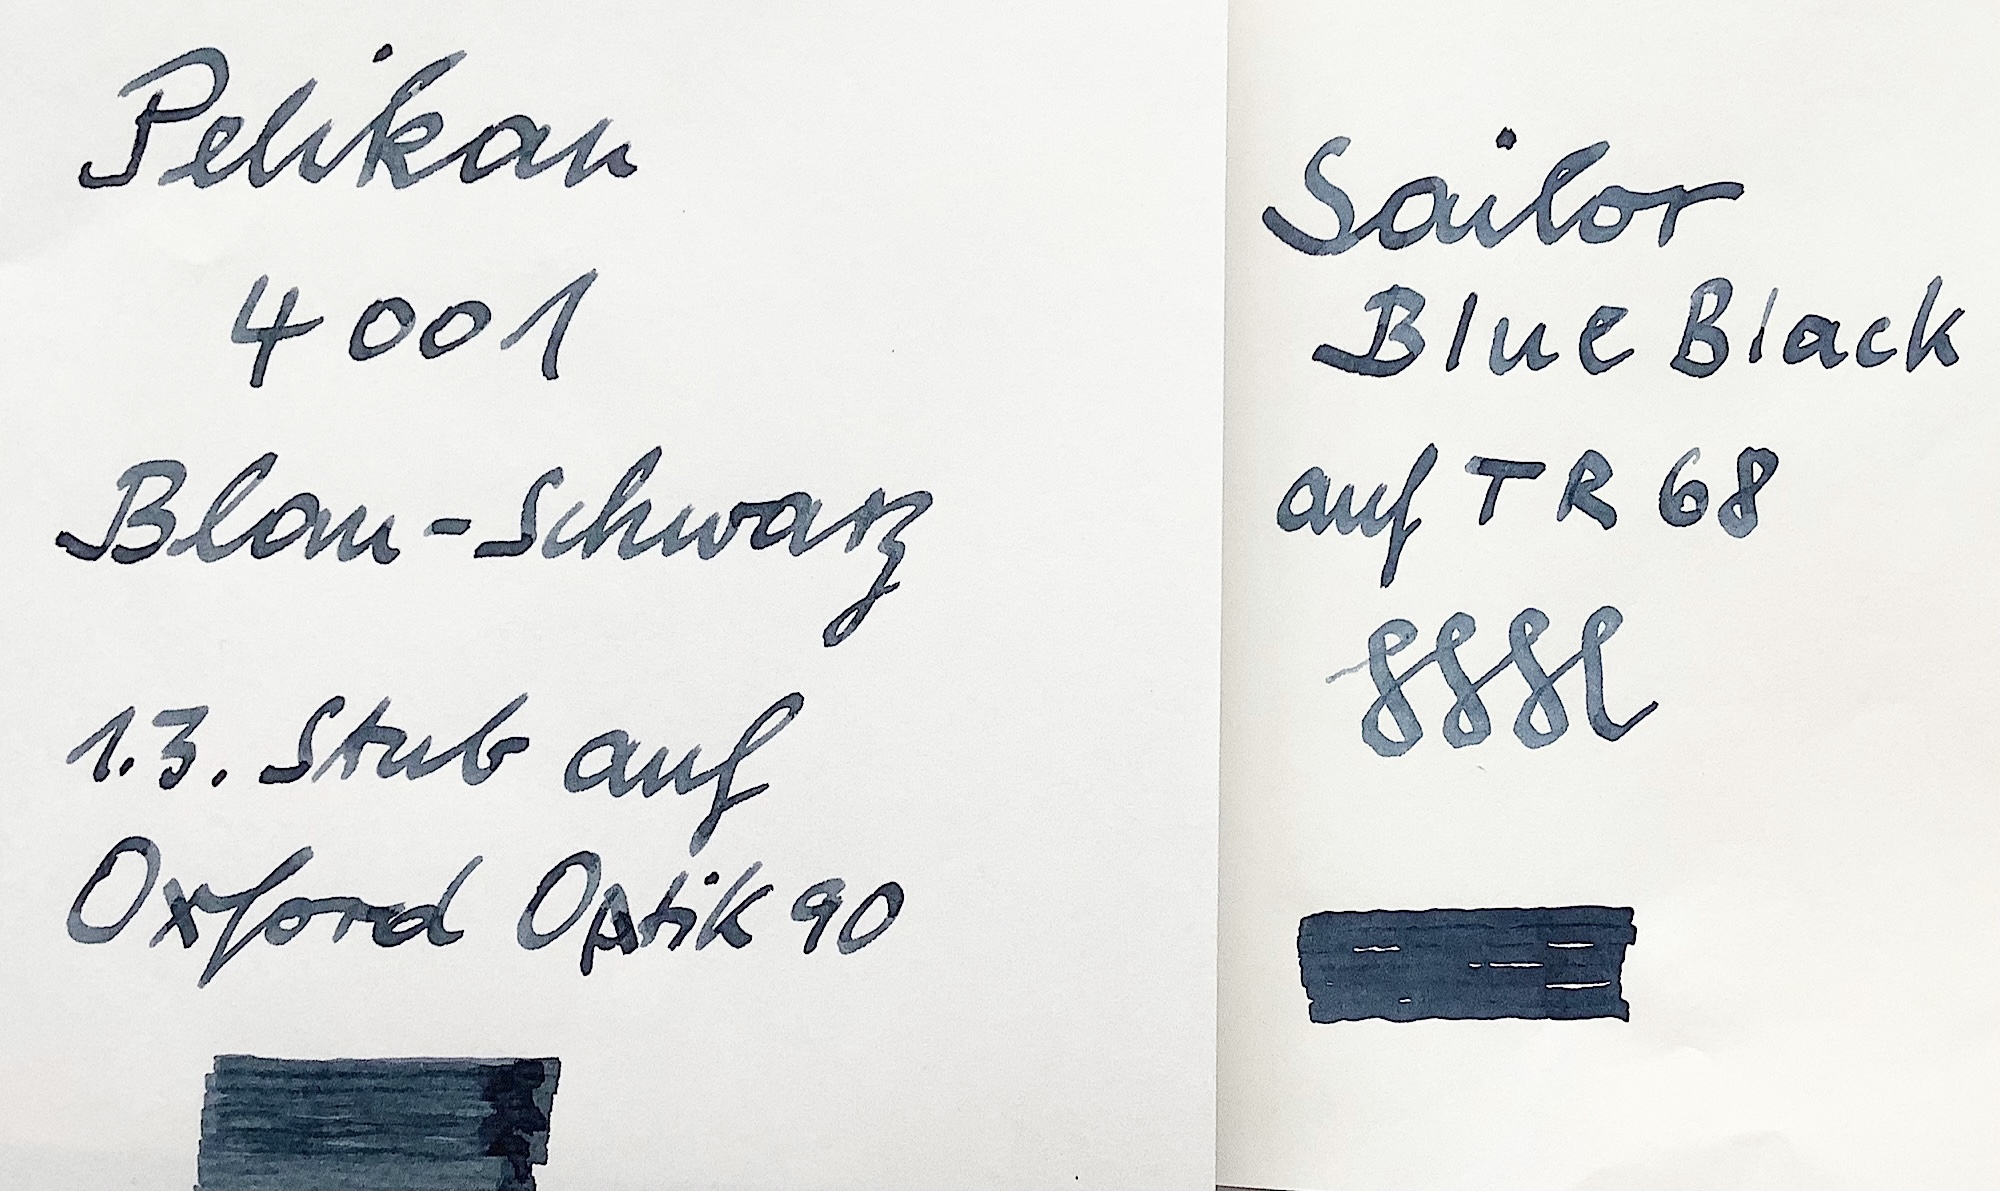 Pelikan
4001
Blau-Schwarz
1.3. Stub auf
Oxford Optik 90
Sailor
Blue Black
auf TR 68